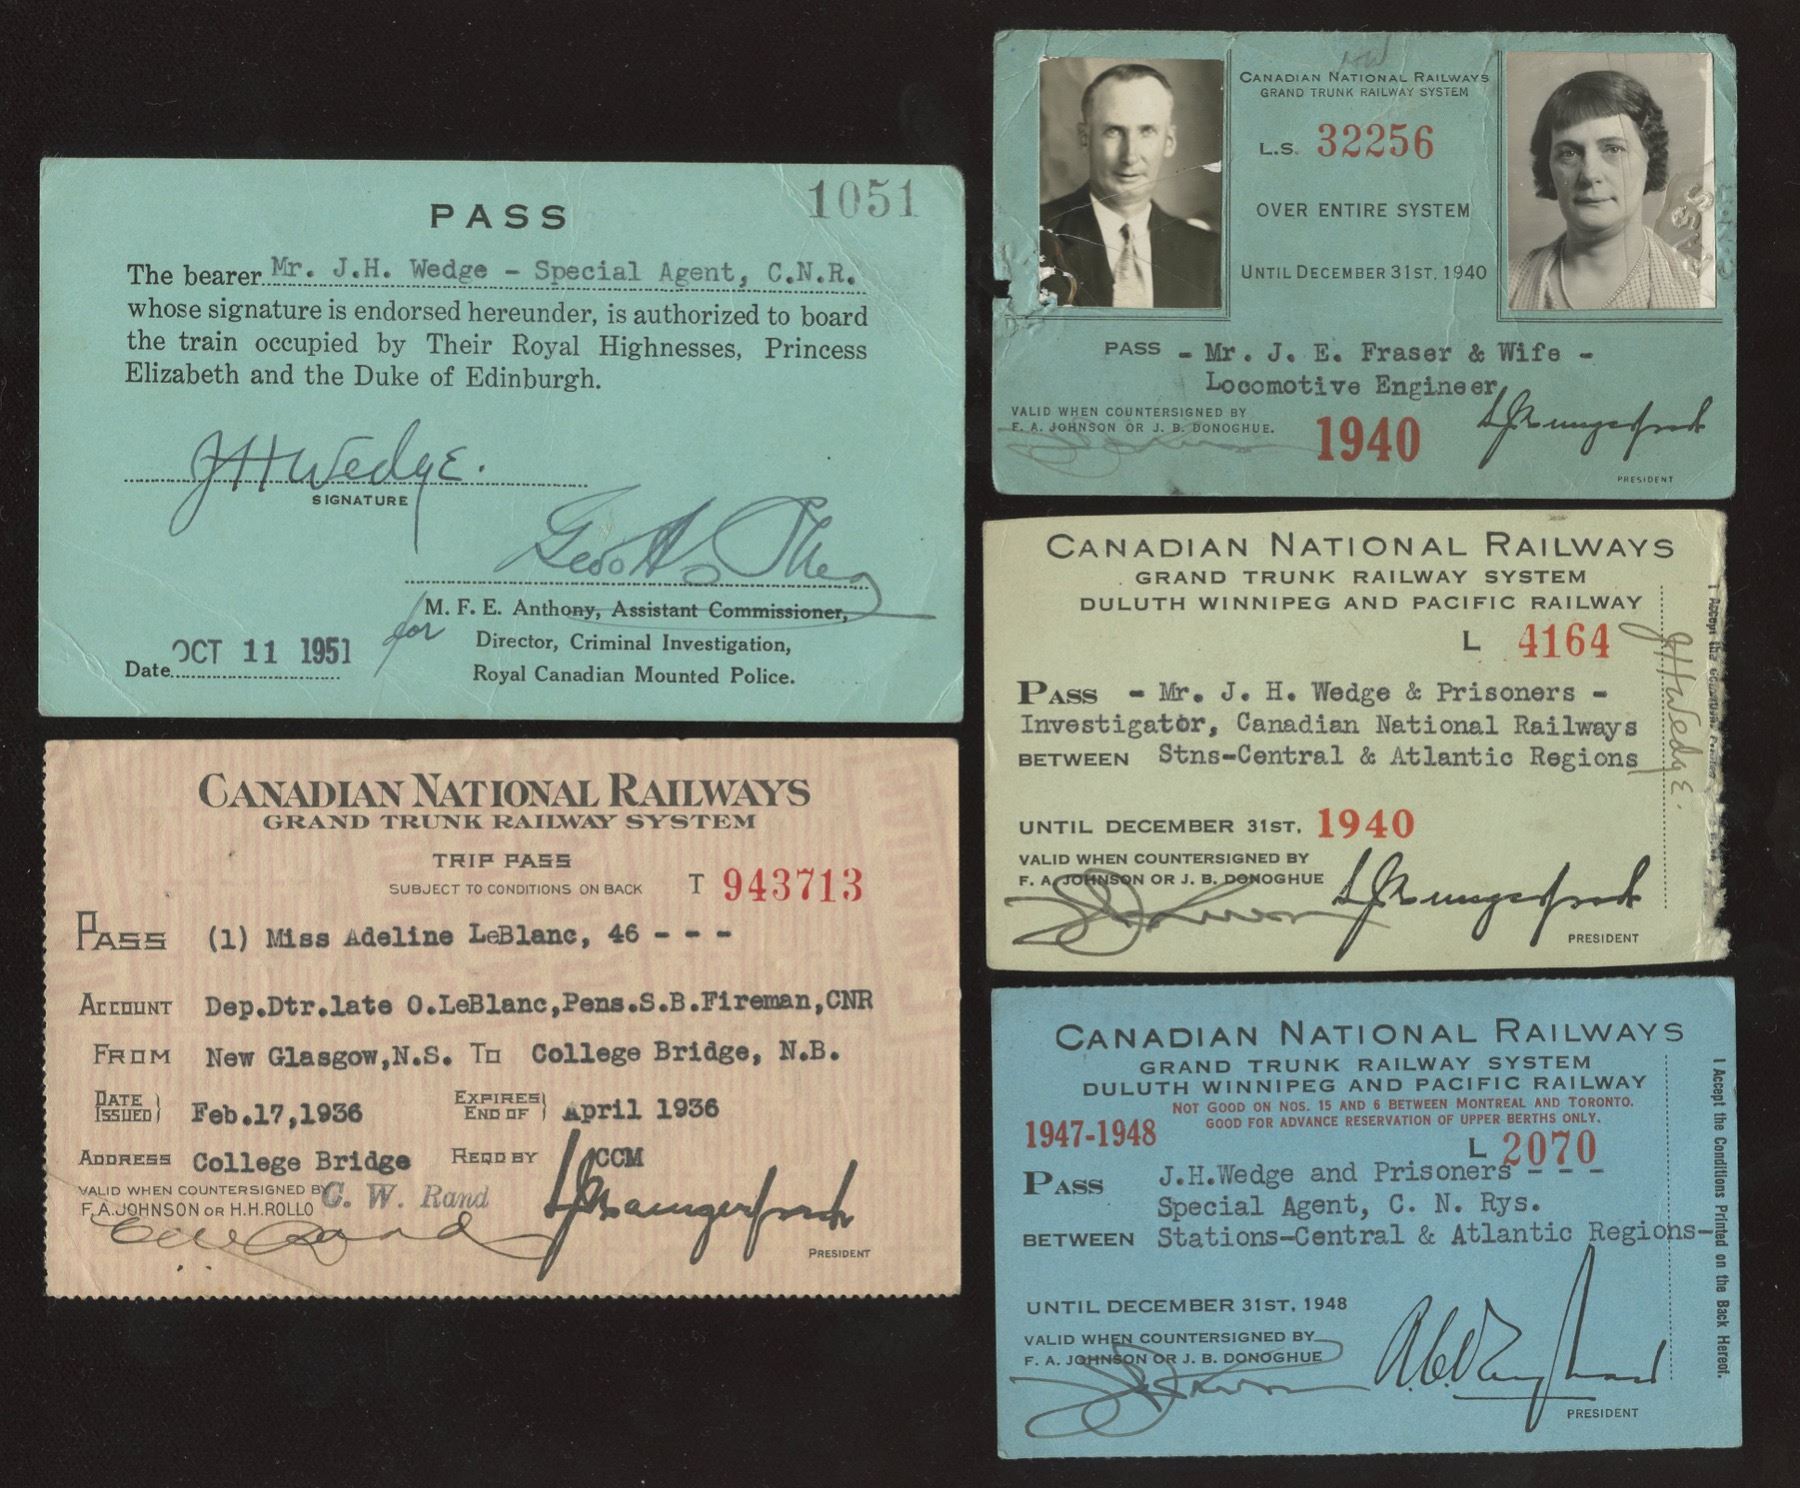 PASS
1051
The bearer Mr. J.H. Wedge - Special Agent, C.N.R.
whose signature is endorsed hereunder, is authorized to board
the train occupied by Their Royal Highnesses, Princess
Elizabeth and the Duke of Edinburgh.
JHWedge.
SIGNATURE
for M. F. E. Anthony, Assistant Commissioner,
Director, Criminal Investigation,
Royal Canadian Mounted Police.
Date OCT 11 1951
CANADIAN NATIONAL RAILWAYS
GRAND TRUNK RAILWAY SYSTEM
TRIP PASS
SUBJECT TO CONDITIONS ON BACK
T 943713
PASS (1) Miss Adeline LeBlanc, 46 - - -
ACCOUNT Dep.Dtr.late O.LeBlanc,Pens.S.B.Fireman,CNR
FROM New Glasgow,N.S. TO College Bridge, N.B.
DATE ISSUED Feb.17,1936 EXPIRES END OF April 1936
ADDRESS College Bridge REQD BY CCM
VALID WHEN COUNTERSIGNED BY C. W. Rand
F.A.JOHNSON OR H.H.ROLLO
PRESIDENT
CANADIAN NATIONAL RAILWAYS
GRAND TRUNK RAILWAY SYSTEM
L.S. 32256
OVER ENTIRE SYSTEM
UNTIL DECEMBER 31ST, 1940
PASS - Mr. J. E. Fraser & Wife -
Locomotive Engineer
VALID WHEN COUNTERSIGNED BY
F. A. JOHNSON OR J. B. DONOGHUE.
1940
PRESIDENT
CANADIAN NATIONAL RAILWAYS
GRAND TRUNK RAILWAY SYSTEM
DULUTH WINNIPEG AND PACIFIC RAILWAY
L 4164
PASS - Mr. J. H. Wedge & Prisoners -
Investigator, Canadian National Railways
BETWEEN Stns-Central & Atlantic Regions
UNTIL DECEMBER 31ST, 1940
VALID WHEN COUNTERSIGNED BY
F. A. JOHNSON OR J. B. DONOGHUE
PRESIDENT
JHWedge.
CANADIAN NATIONAL RAILWAYS
GRAND TRUNK RAILWAY SYSTEM
DULUTH WINNIPEG AND PACIFIC RAILWAY
NOT GOOD ON NOS. 15 AND 6 BETWEEN MONTREAL AND TORONTO.
GOOD FOR ADVANCE RESERVATION OF UPPER BERTHS ONLY.
1947-1948
L 2070
PASS J.H.Wedge and Prisoners - - -
Special Agent, C. N. Rys.
BETWEEN Stations-Central & Atlantic Regions-
UNTIL DECEMBER 31ST, 1948
VALID WHEN COUNTERSIGNED BY
F. A. JOHNSON OR J. B. DONOGHUE
PRESIDENT
I Accept the Conditions Printed on the Back Hereof.